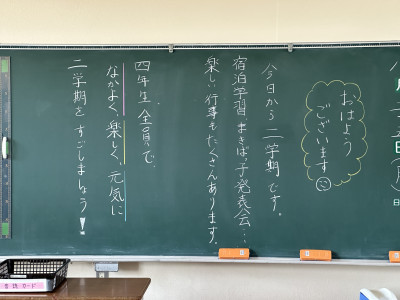 八月二十五日(月)
日
おはよう
ございます
今日から 二学期です。
宿泊学習、まきばっ子発表会…
楽しい行事もたくさんあります。
四年生、全員で
なかよく 楽しく 元気に
二学期を すごしましょう!
音読カード